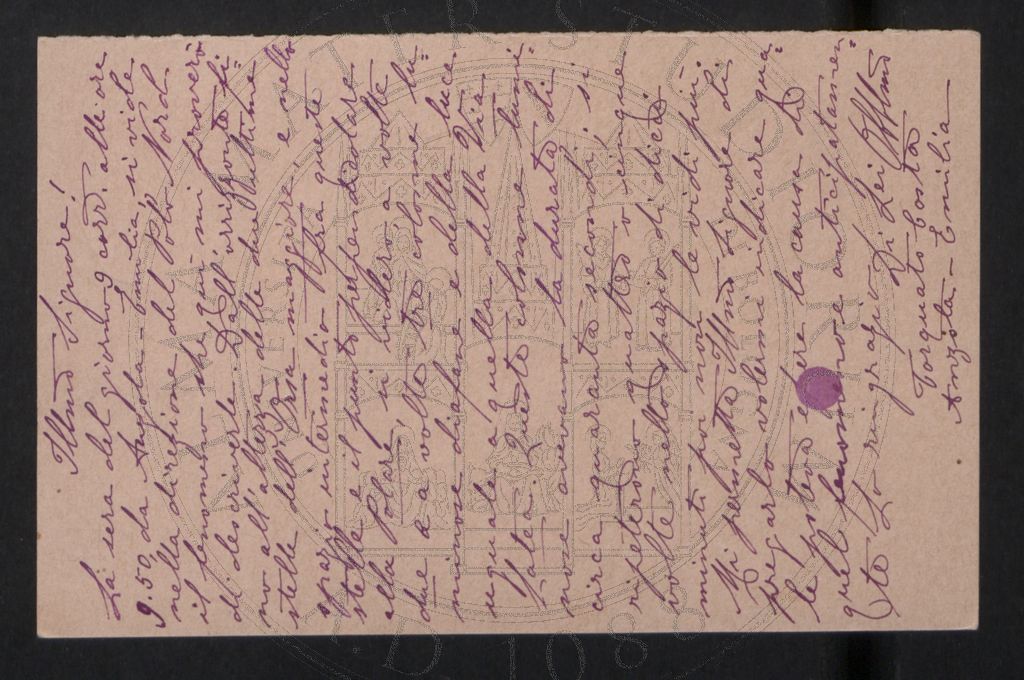 Illmo Signore!
La sera del giorno 9 corr. alle ore
9.50, da Anzola-Emilia, si vide
nella direzione del Polo Nord
il fenomeno che qui mi proverò
di descriverle. Dall'orrizzonte fi-
no all'altezza delle due ultime
stelle dell'Orsa maggiore, e nello
spazio intermedio fra queste
stelle e il punto prependicolare
alla Polare, si videro a volte
due e a volte tre colonne lu-
minose diafane e della luce
uguale a quella della Via
Lattea. Queste colonne lumi-
nose avevano la durata di
circa quaranta secondi; si
ripeterono quattro o cinque
volte nello spazio di dieci
minuti poi non le vidi più.
Mi permetta Illmo Signore di
pregarlo volermi indicare qua-
le potrà essere la causa di
quel fenomeno e anticipatamen-
te Lo ringrazio. Di Lei Illmo
Torquato Costa
Anzola-Emilia